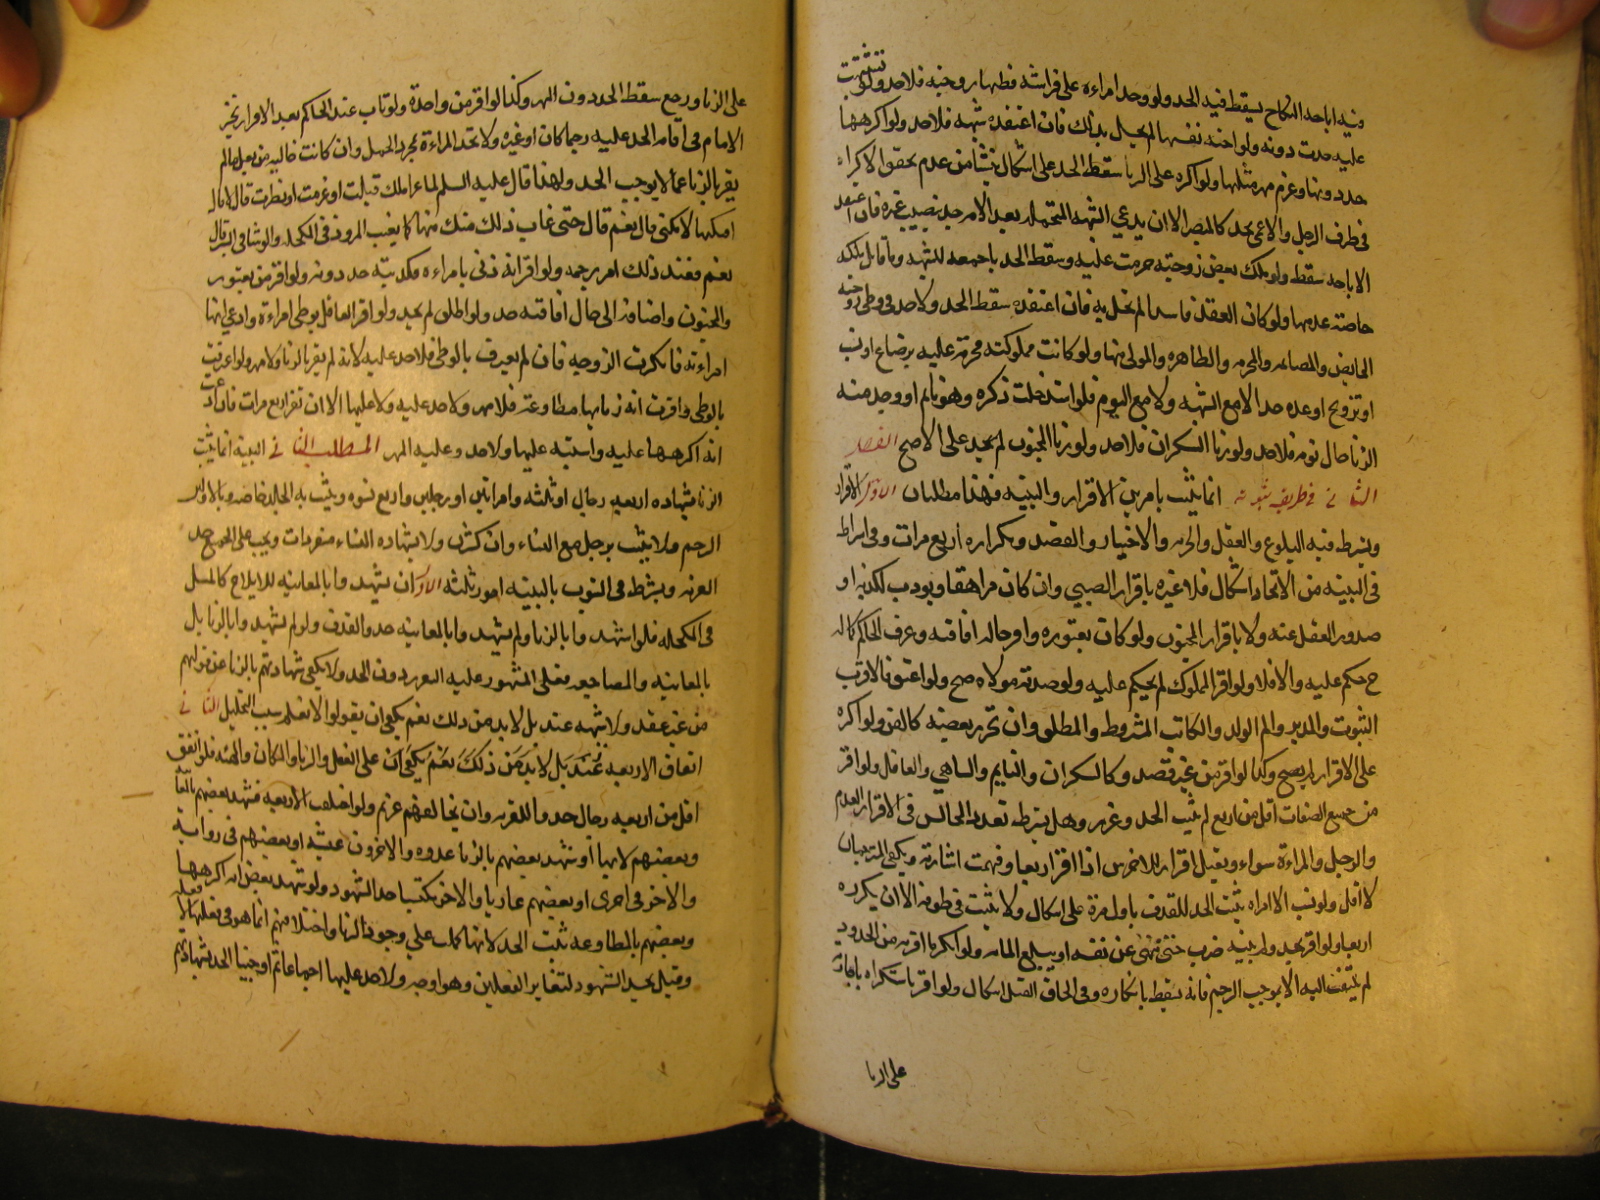 فيه اباحه النكاح يسقط فيه الحد ولو وجد امراءه على فراشه فظنها زوجته فلا حد ولو تشبهت
عليه حدت دونه ولو احته نفسها لم يحل بذلك فان اعتقده شبه فلا حد ولو اكرهها
حد دونها وغرم مهر مثلها ولو اكره على الزنا سقط الحد على اشكال ينشأ من عدم تحقق الاكراه
في طرف الرجل والاعمى يحد كالمبصر الا ان يدعي الشبه المحتمله بعد الامر حد نصيب غيره فان اعتقد
الاباحه سقط ولو ملك بعض زوجته حرمت عليه وسقط الحد باجمعه للشبه وما قابل ملكه
خاصة عدمها ولو كان العقد فاسدا لم تحل به فان اعتقده سقط الحد ولا حد في وطي زوجته
الحايض والصايمه والمحرمه والظاهره والمولى منها ولو كانت مملوكته محرمة عليه برضاع او نسب
او تزويج او عده حد الا مع الشبه ولا مع النوم فلو استدخلت ذكره وهو نايم او وجد منه
الزنا حال نومه فلا حد ولو زنا السكران فلا حد ولو زنا المجنون لم يحد على الاصح الفصل
الثاني في طريق ثبوته انما يثبت بامرين الاقرار والبينه فهنا مطلبان الاول الاقرار
ويشترط فيه البلوغ والعقل والحريه والاختيار والقصد وتكراره اربع مرات وفي اشتراط
في البينه من الاتحاد اشكال فلا عبره باقرار الصبي وان كان مراهقا ويودب لكذبه او
صدور الفعل عنه ولا باقرار المجنون ولو كان يعتوره واقر حاله افاقته وعرف الحاكم كماله
ح حكم عليه والا فلا ولو اقر المملوك لم يحكم عليه ولو صدقه مولاه صح ولو اعتق فالاقرب
الثبوت والمدبر وام الولد والمكاتب المشروط والمطلق وان تحرر بعضه كالقن ولو اكره
على الاقرار لم يصح وكذا لو اقر من غير قصد وكالسكران والنايم والساهي والغافل ولو اقر
من جميع الصفات اقل من اربع لم يثبت الحد وعزر وهل يشترط تعدد المجالس في الاقرار العدم
والرجل والمراءة سواء ويقبل اقرار الاخرس اذا اقر اربعا وفهمت اشارته ويكفي المترجمان
لا اقل ولو نسب الا امراه ثبت الحد للقذف باول مرة على اشكال ولا يثبت في طرفه الا ان يكرره
اربعا ولو اقر بحد ولم يبينه ضرب حتى ينهى عن نفسه او يبلغ المايه ولو انكر ما اقر به من الحدود
لم يلتفت اليه الا بموجب الرجم فانه يسقط بانكاره وفي الحاق القتل اشكال ولو اقر باستكراه جاريه
على الزنا
على الزنا ورجع سقط الحد دون المهر وكذا لو اقر من واحدة ولو تاب عند الحاكم بعد الاقرار تخير
الامام في اقامه الحد عليه رجما كان او غيره ولا تحد المراءة بمجرد الحمل وان كانت خاليه من بعل ما لم
يقر بالزنا عما لا يوجب الحد ولهذا قال عليه السلم لماعز لعلك قبلت او غمزت او نظرت قال لا قال
افنكتها لا تكنى قال نعم قال حتى غاب ذلك منك منها كما يغيب المرود في المكحله والرشا في البئر قال
نعم فعند ذلك امر برجمه ولو اقر انه زنى بامراءه فكذبته حد دونها ولو اقر من يعتوره
والجنون واضافه الى حال افاقته حد ولو اطلق لم يحد ولو اقر العاقل بوطي امراءة وادعى انها
امراءته فانكرت الزوجيه فان لم يعترف بالوطي فلا حد عليه لانه لم يقر بالزنا ولا مهر ولو اعترفت
بالوطي واقرت انه زنى بها مطاوعة فلا مهر ولا حد عليه ولا عليها الا ان تقر اربع مرات فان ادعت
انه اكرهها عليه واشتبه عليها ولا حد وعليه المهر المطلب الثاني في البينه انما يثبت
الزنا بشهاده اربعه رجال او ثلثه وامراتين او رجلين واربع نسوه ويثبت به الجلد خاصه وبالاولين
الرجم ولا يثبت برجل مع النساء وان كثرن ولا بشهاده النساء منفردات ويجب على الجميع حد
الفريه ويشترط في الثبوت بالبينه امور ثلثه الاول ان يشهدوا بالمعاينه للايلاج كالميل
في المكحله فلو شهدوا بالزنا ولم يشهدوا بالمعاينه حد والقذف ولو لم يشهدوا بالزنا بل
بالمعاينه والمضاجعه فعلى المشهود عليه التعزير دون الحد ولا يكفي شهادتهم بالزنا عن قولهم
من غير عقد ولا شبهه عقد بل لا بد من ذلك نعم يكفي ان يقولوا لا نعلم سبب التحليل الثاني
اتفاق الاربعه عند بل لا بد من ذلك نعم يكفي ان على الفعل والزنا والمكان والهيئه فلو اتفق
اقل من اربعه رجال حدوا للفريه وان تخالفهم عزم ولو اختلف الاربعه فشهد بعضهم بالمعاينه
وبعضهم لا بها او شهد بعضهم بالزنا غدوه والاخرون عشيه او بعضهم في زوايه
والاخر في اخرى او بعضهم عاريا والاخر مكتسيا حد الشهود ولو شهد بعض انه اكرهها
وبعضهم بالمطاوعه ثبت الحد لانها كملت على وجود الزنا واختلافهم انما هو في فعلها لا فعله
وقيل يحد الشهود لتغاير الفعلين وهو اوجه ولا حد عليها اجماعا ثم اوجبنا الحد بشهادتهم